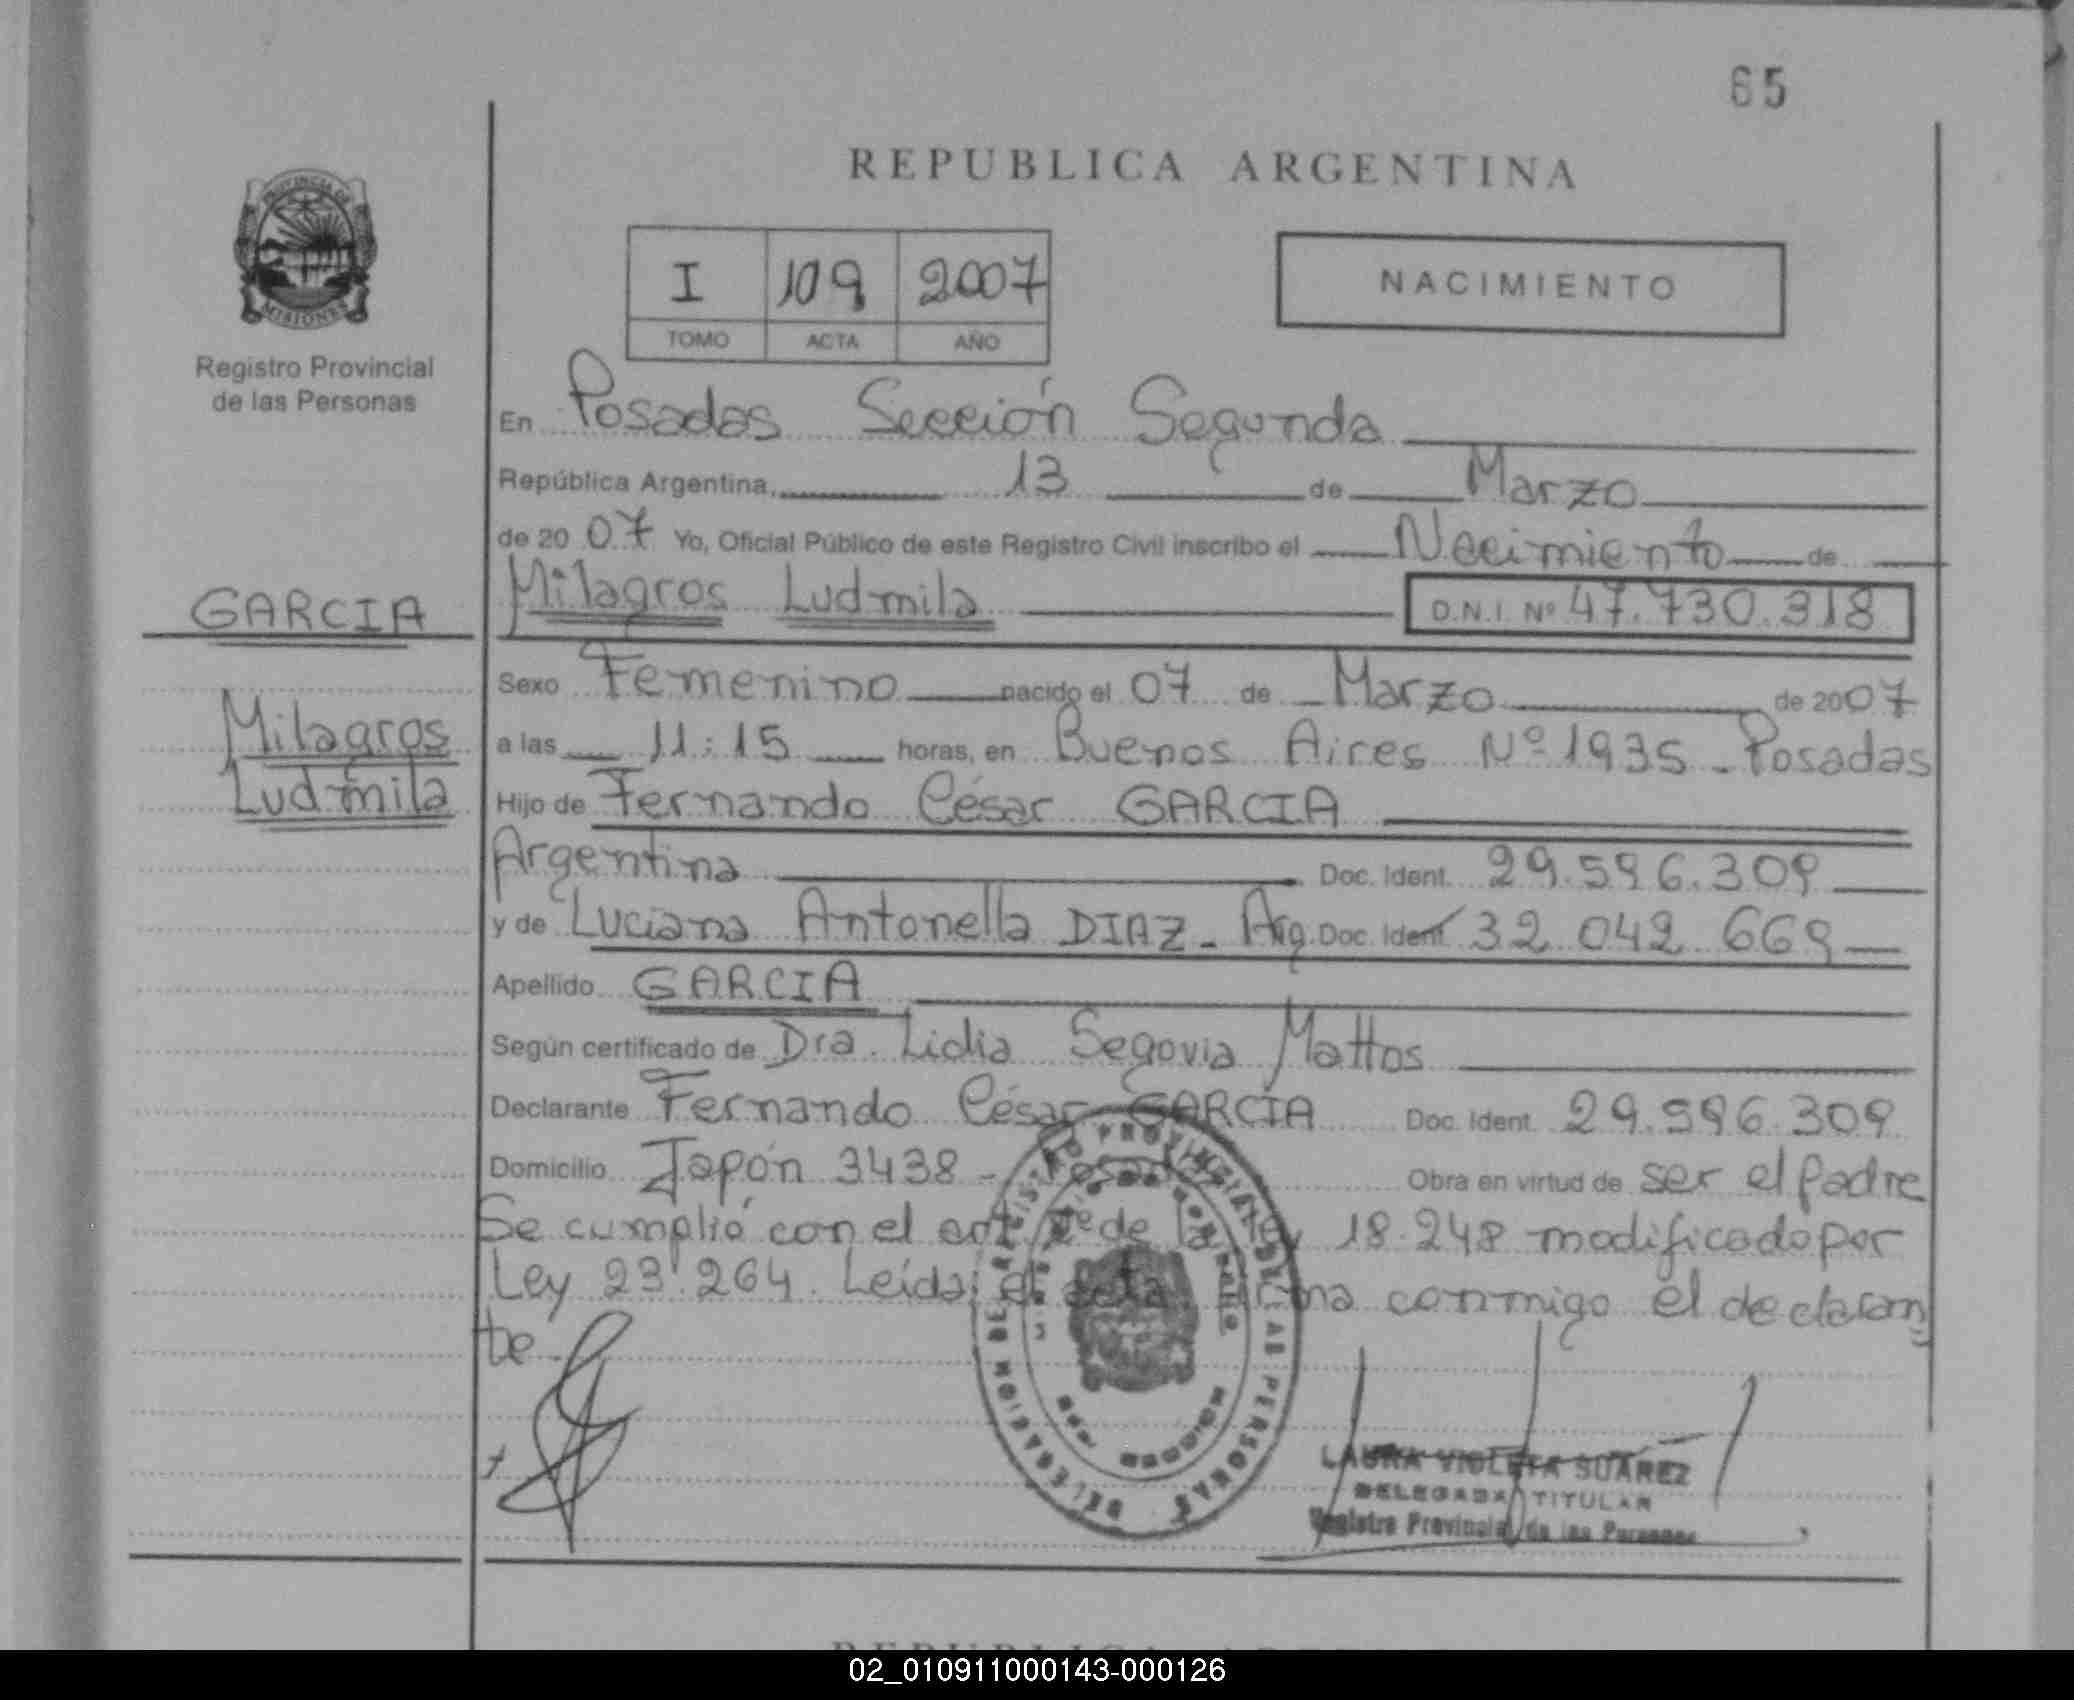 65
REPUBLICA ARGENTINA
PROVINCIA DE
MISIONES
Registro Provincial
de las Personas
I 109 2007
TOMO ACTA AÑO
NACIMIENTO
En Posadas Sección Segunda
República Argentina, 13 de Marzo
de 20 07 Yo, Oficial Público de este Registro Civil inscribo el Nacimiento de
GARCIA
Milagros Ludmila D.N.I. Nº 47.730.318
Sexo Femenino nacido el 07 de Marzo de 2007
Milagros
a las 11:15 horas, en Buenos Aires Nº 1935 - Posadas
Ludmila
Hijo de Fernando César GARCIA
Argentina Doc. Ident. 29.596.309
y de Luciana Antonella DIAZ - Arg. Doc. Ident 32 042 669
Apellido GARCIA
Según certificado de Dra. Lidia Segovia Mattos
Declarante Fernando César GARCIA Doc. Ident. 29.596.309
Domicilio Japón 3438 - Obra en virtud de ser el padre
Se cumplió con el art de la Ley 18.248 modificado por
Ley 23.264. Leída el acta firma conmigo el declaran
te.
DELEGACION DE REGISTRO PROVINCIAL DE LAS PERSONAS
LAURA VIOLETA SUAREZ
DELEGADA TITULAR
Registro Provincial de las Personas
02_010911000143-000126